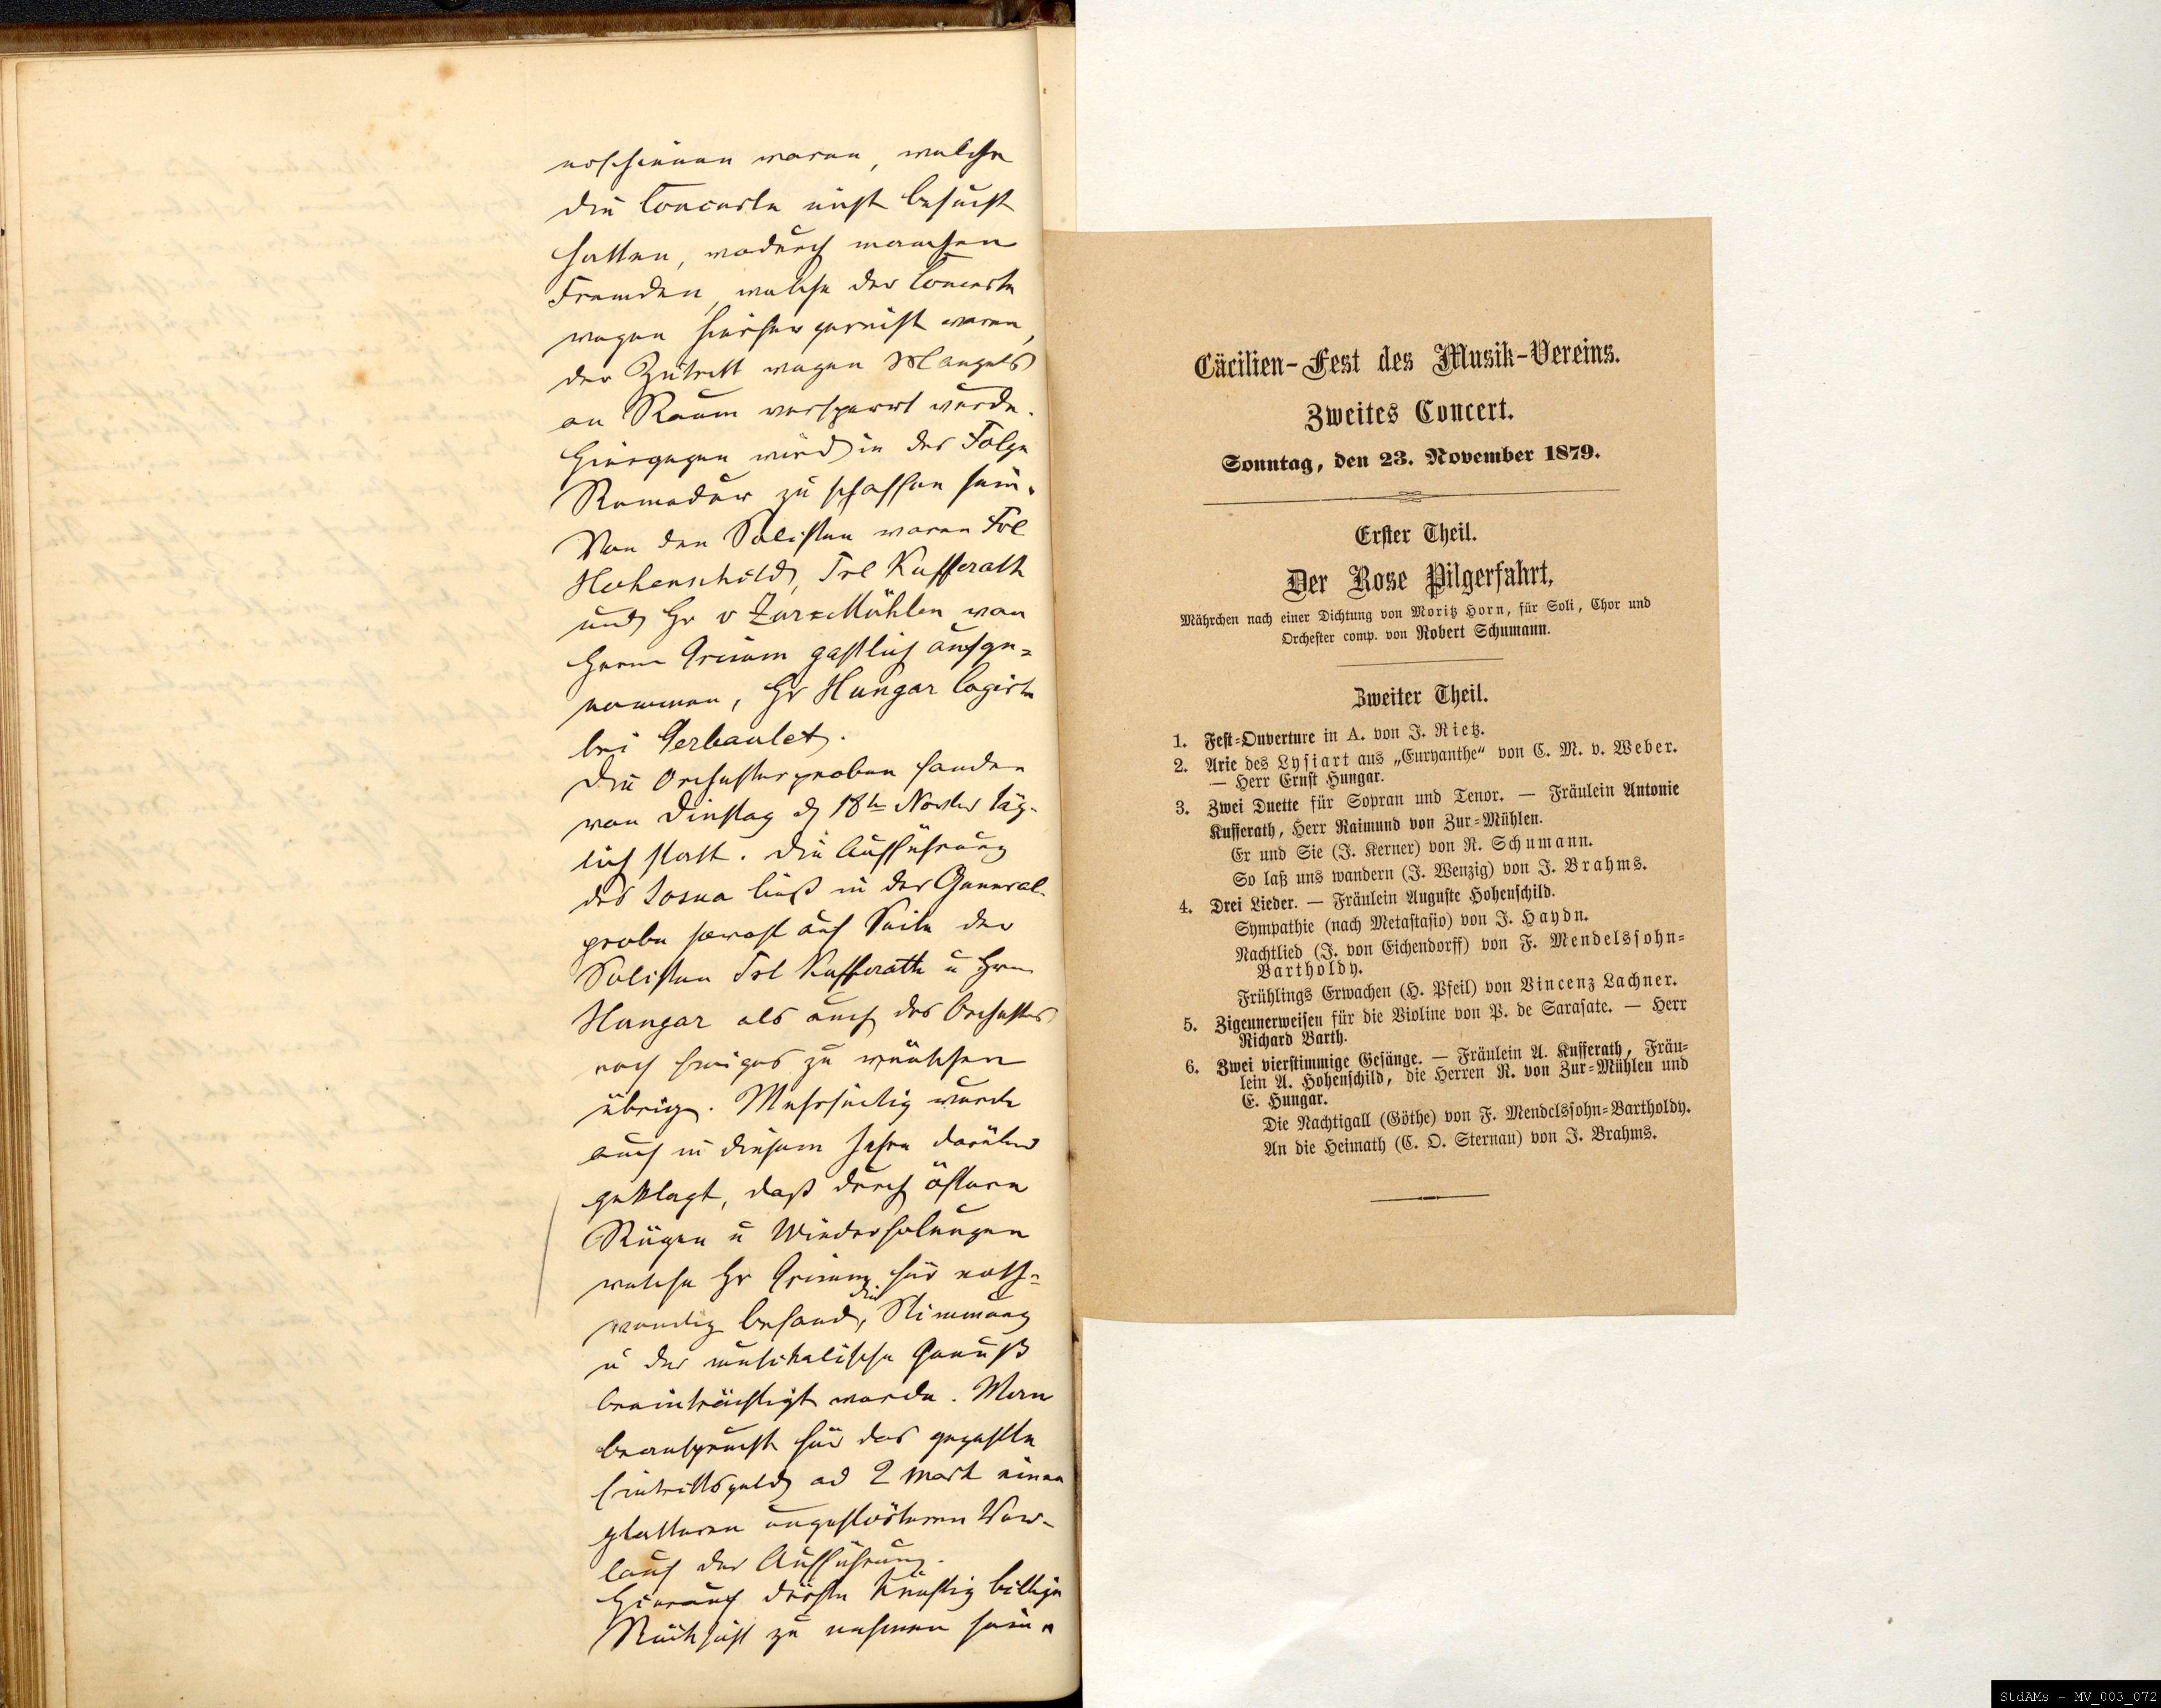 erschienen waren, welche
die Concerte nicht besucht
hatten, wodurch manchen
Fremden, welche der Concerte
wegen hierher gereist waren,
der Zutritt wegen Mangels
an Raum versperrt wurde.
Hiergegen wird in der Folge
Remedur zu schaffen sein.
Von den Solisten waren Frl
Hohenschild, Frl Kufferath
und Hr v Zur=Mühlen von
Herrn Grimm gastlich aufge=
nommen, Hr Hungar logirte
bei Gerbaulet.
Die Orchesterproben fanden
von Dinstag d 18t Novber täg-
lich statt. Die Aufführung
des Josua ließ in der General-
probe sowohl auf Seite der
Solisten Frl Kufferath u Hrn
Hungar als auch des Orchesters
noch Einiges zu wünschen
übrig. Mehrseitig wurde
auch in diesem Jahre darüber
geklagt, daß durch öftere
Rügen u Wiederholungen
welche Hr Grimm für noth=
wendig befand, die Stimmung
u der musikalische Genuß
beeinträchtigt werde. Man
beansprucht für das gezahlte
Eintrittsgeld ad 2 Mark einen
glatteren ungestörteren Ver-
lauf der Aufführung.
Hierauf dürfte künftig billige
Rücksicht zu nehmen sein.
Cäcilien-Fest des Musik-Vereins.
Zweites Concert.
Sonntag, den 23. November 1879.
Erster Theil.
Der Rose Pilgerfahrt,
Mährchen nach einer Dichtung von Moritz Horn, für Soli, Chor und
Orchester comp. von Robert Schumann.
Zweiter Theil.
1. Fest=Ouverture in A. von J. Rietz.
2. Arie des Lysiart aus „Euryanthe“ von C. M. v. Weber.
— Herr Ernst Hungar.
3. Zwei Duette für Sopran und Tenor. — Fräulein Antonie
Kufferath, Herr Raimund von Zur=Mühlen.
Er und Sie (J. Kerner) von R. Schumann.
So laß uns wandern (J. Wenzig) von J. Brahms.
4. Drei Lieder. — Fräulein Auguste Hohenschild.
Sympathie (nach Metastasio) von J. Haydn.
Nachtlied (J. von Eichendorff) von F. Mendelssohn=
Bartholdy.
Frühlings Erwachen (H. Pfeil) von Vincenz Lachner.
5. Zigeunerweisen für die Violine von P. de Sarasate. — Herr
Richard Barth.
6. Zwei vierstimmige Gesänge. — Fräulein A. Kufferath, Fräu=
lein A. Hohenschild, die Herren R. von Zur=Mühlen und
E. Hungar.
Die Nachtigall (Göthe) von F. Mendelssohn=Bartholdy.
An die Heimath (C. O. Sternau) von J. Brahms.
StdAMs - MV_003_072